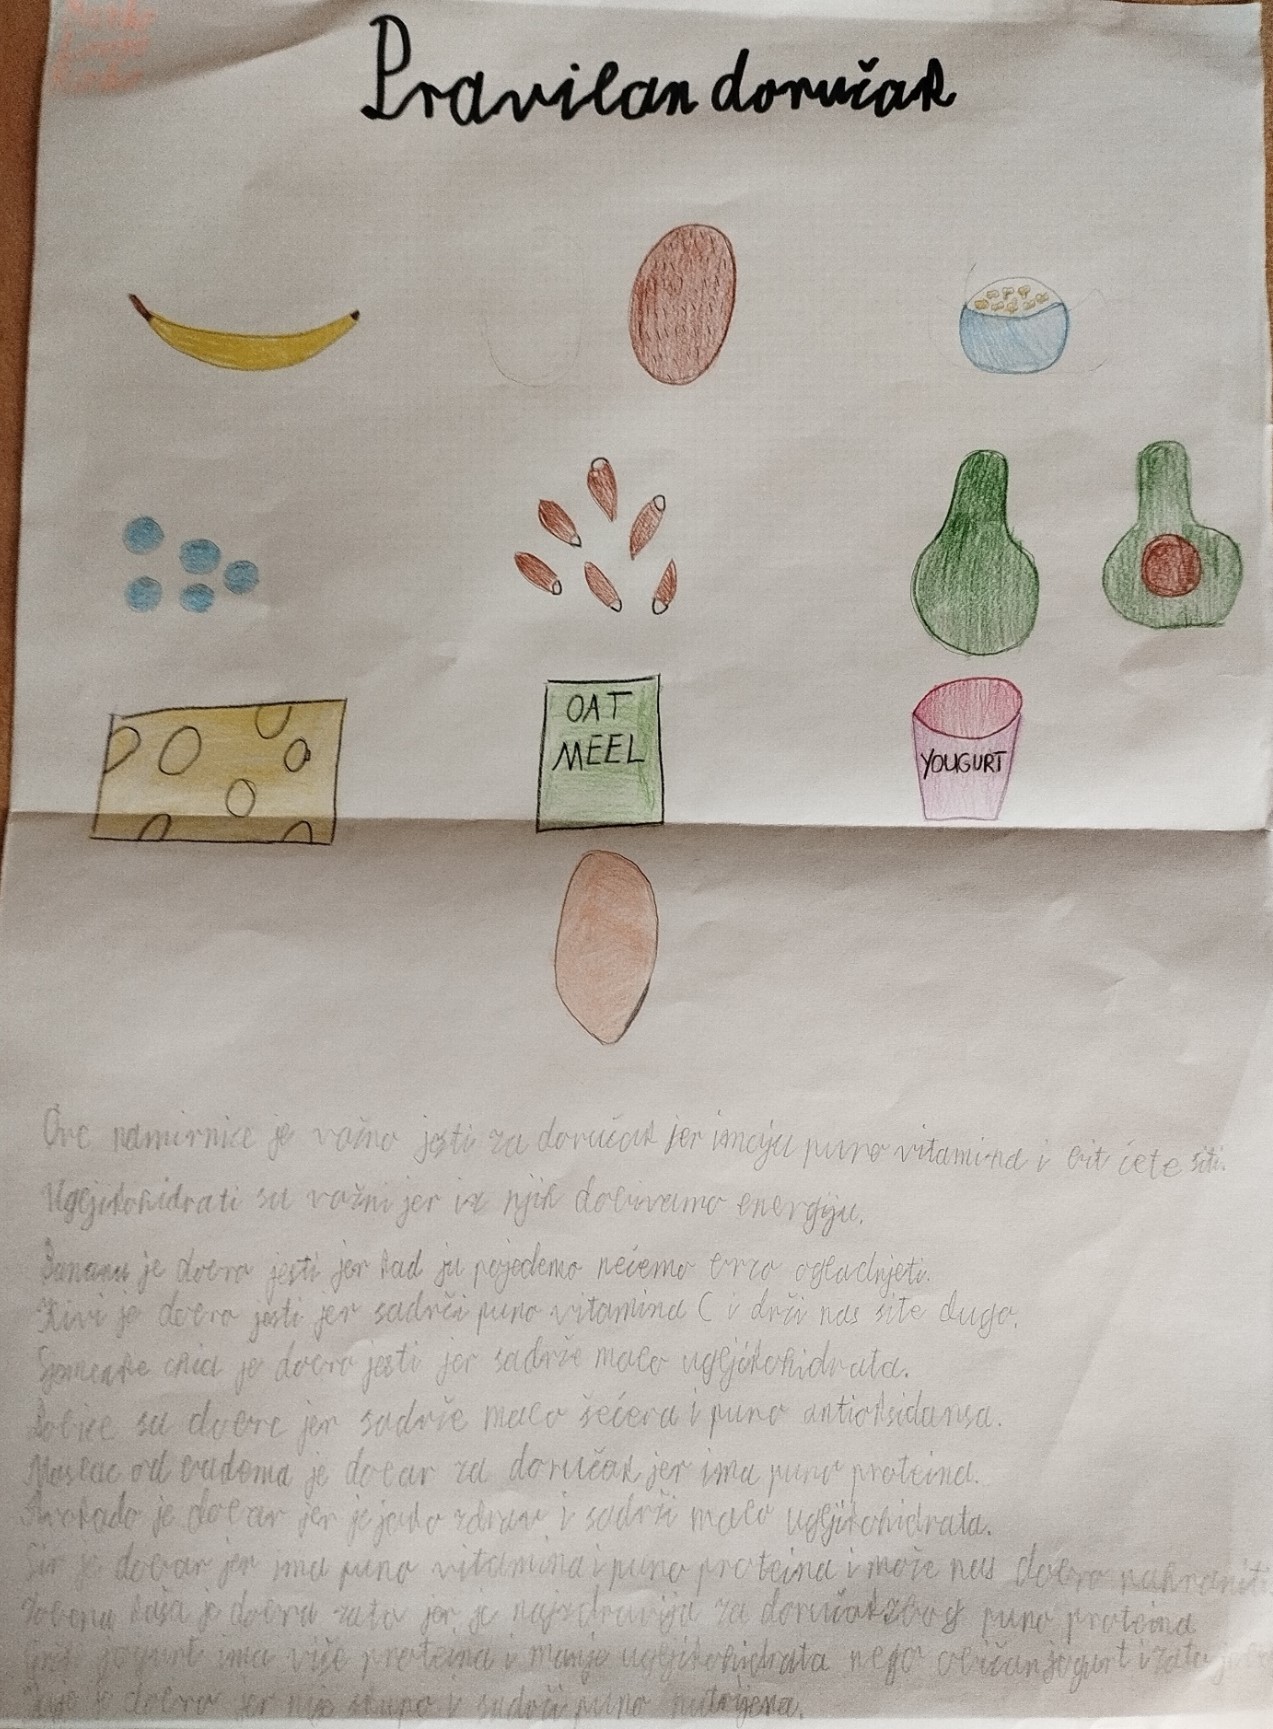 Marko
Roko
Pravilan doručak
OAT
MEEL
YOUGURT
Ove namirnice je važno jesti za doručak jer imaju puno vitamina i bit ćete siti.
Ugljikohidrati su važni jer iz njih dobivamo energiju.
Bananu je dobro jesti jer kad ju pojedemo nećemo brzo ogladnjeti.
Kivi je dobro jesti jer sadrži puno vitamina C i drži nas site dugo.
Sjemenke chia je dobro jesti jer sadrže malo ugljikohidrata.
Bobice su dobre jer sadrže malo šećera i puno antioksidansa.
Maslac od badema je dobar za doručak jer ima puno proteina.
Avokado je dobar jer je jako zdrav i sadrži malo ugljikohidrata.
Sir je dobar jer ima puno vitamina i puno proteina i može nas dobro nahraniti
Zobena kaša je dobra zato jer je najzdravija za doručak zbog puno proteina
Grčki jogurt ima više proteina i manje ugljikohidrata nego običan jogurt i zato je
Jaje je dobro jer nije skupo i sadrži puno nutrijena.